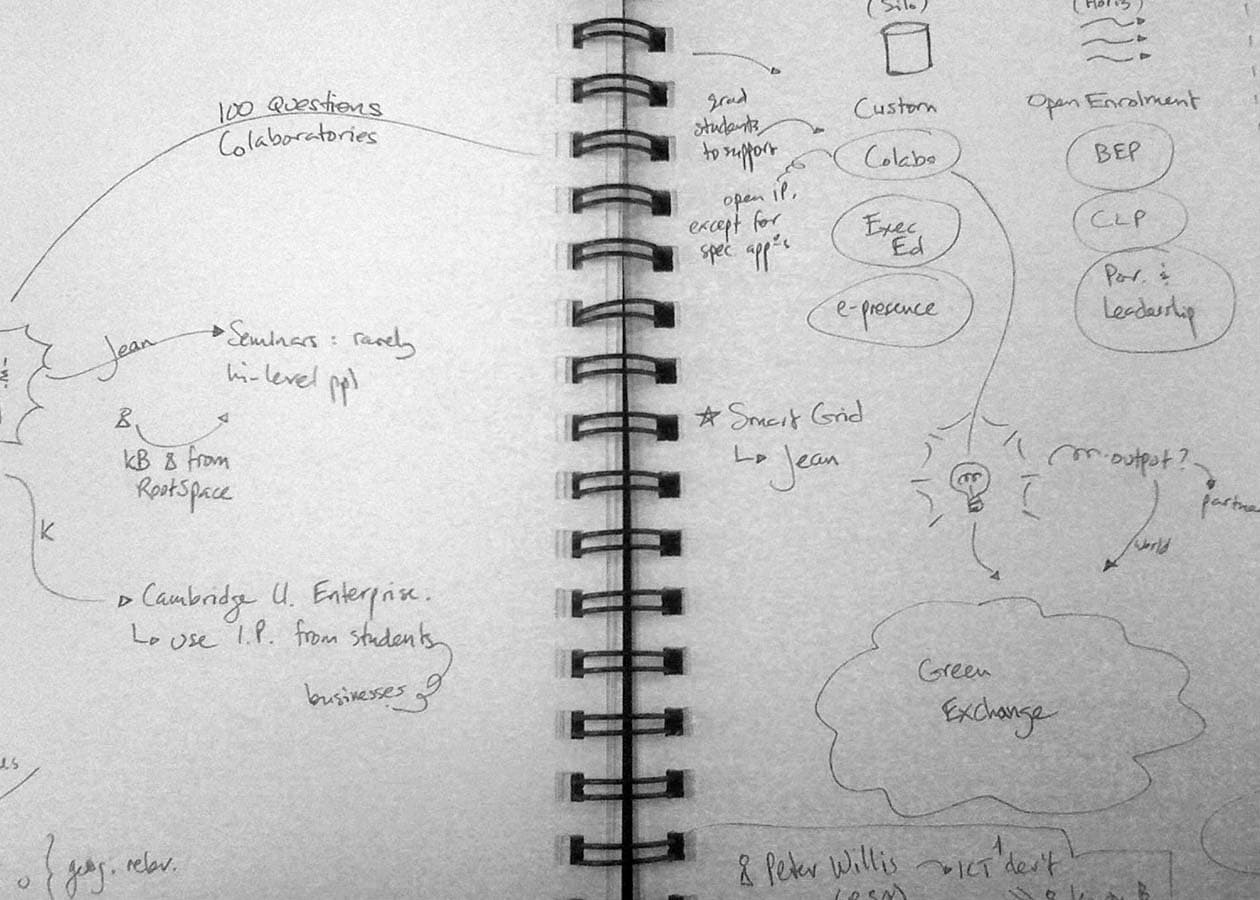 100 Questions
Colaboratories
Jean
Seminars : rarely
hi-level ppl
&
KB & from
RootSpace
K
Cambridge U. Enterprise.
use I.P. from students
businesses
geog. relev.
(Silo)
(Horiz)
grad
students
to support
Custom
Open Enrolment
Colabo
BEP
open IP,
except for
spec app²s
Exec
Ed
CLP
e-presence
Par. &
Leadership
Smart Grid
Jean
output?
partne
world
Green
Exchange
& Peter Willis
ICT⁴dev't